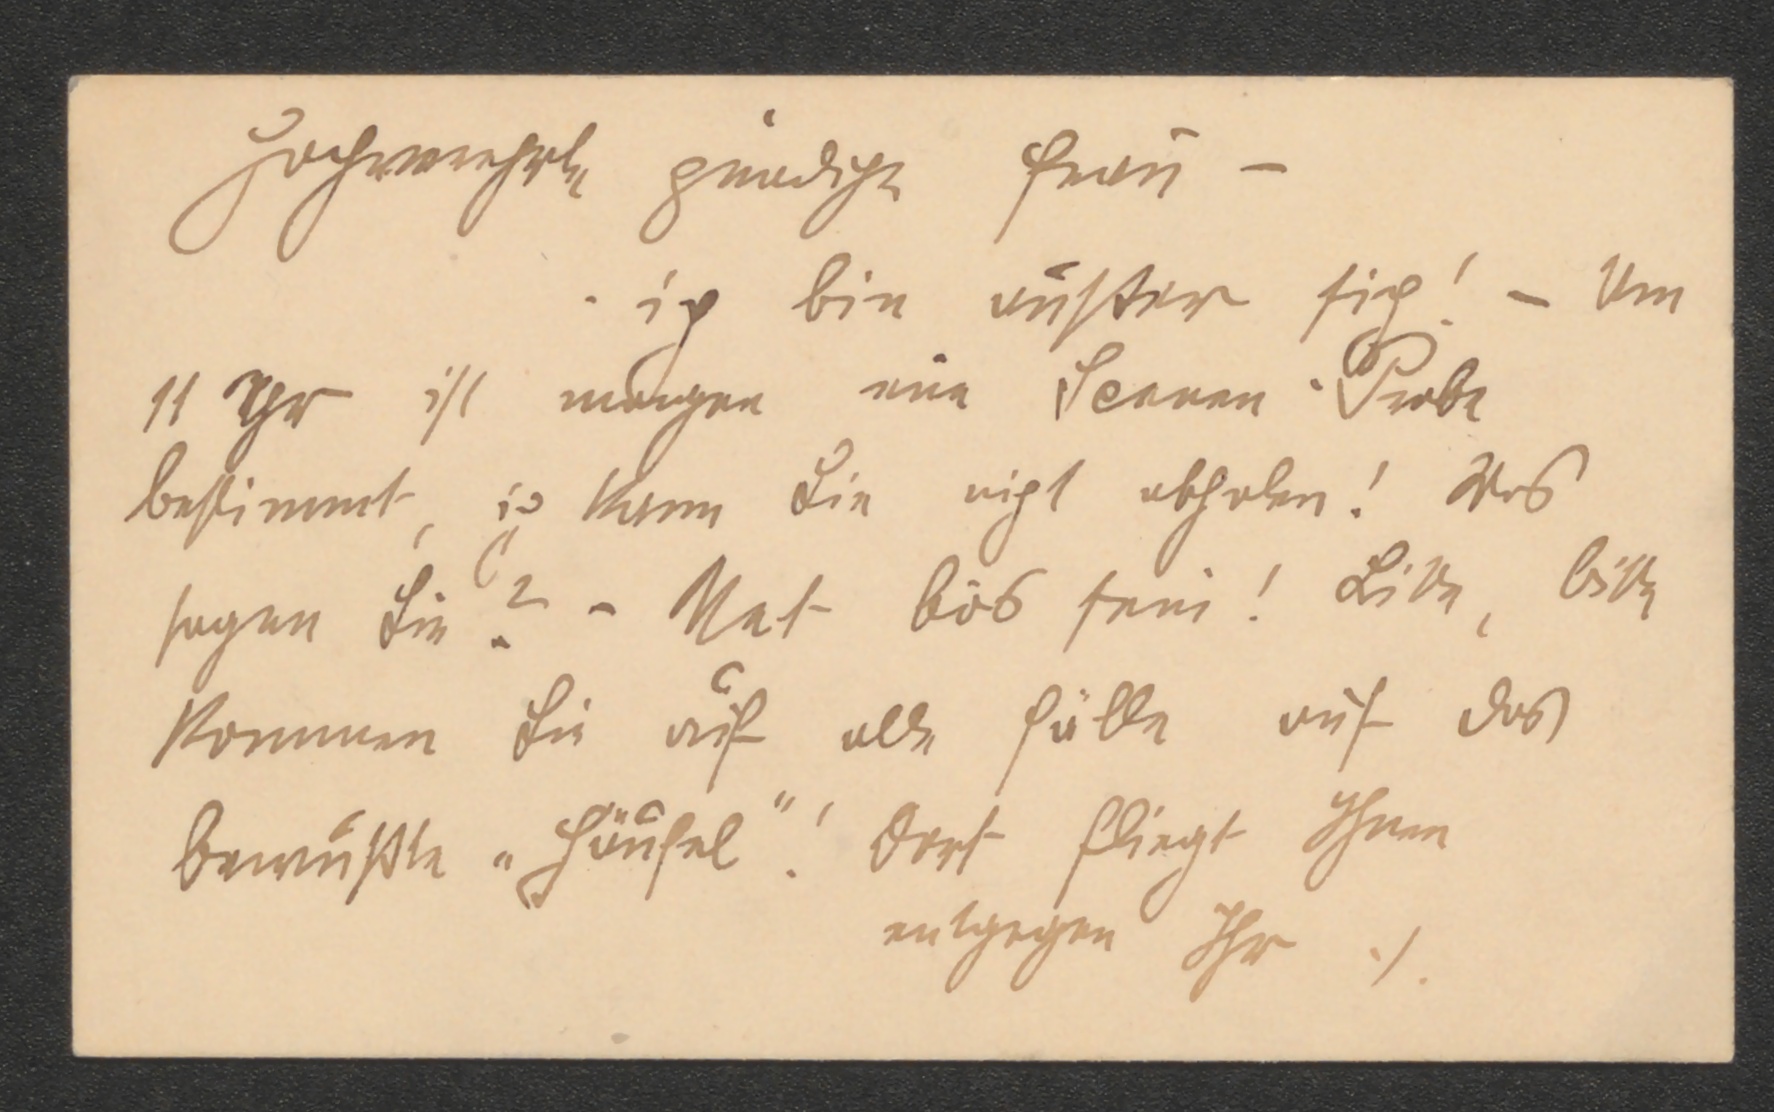 Hochverehrte gnädige Frau –
ich bin außer sich! – Um
11 Uhr ist morgen eine Scenen-Probe
bestimmt, ich kann Sie nicht abholen! Was
sagen Sie? – Net bös sein! Bitte, bitte
kommen Sie auf alle Fälle auf das
bewußte „Häusel"! Dort fliegt Ihnen
entgegen Ihr ./.